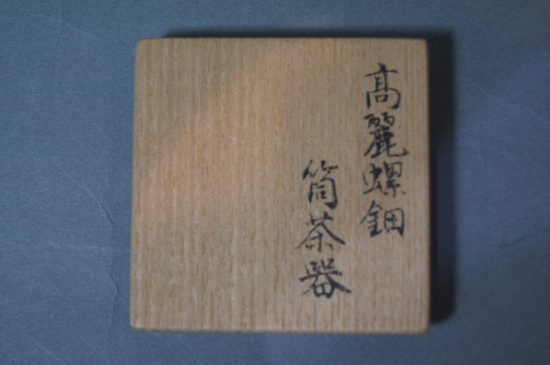 髙麗螺鈿
筒茶器